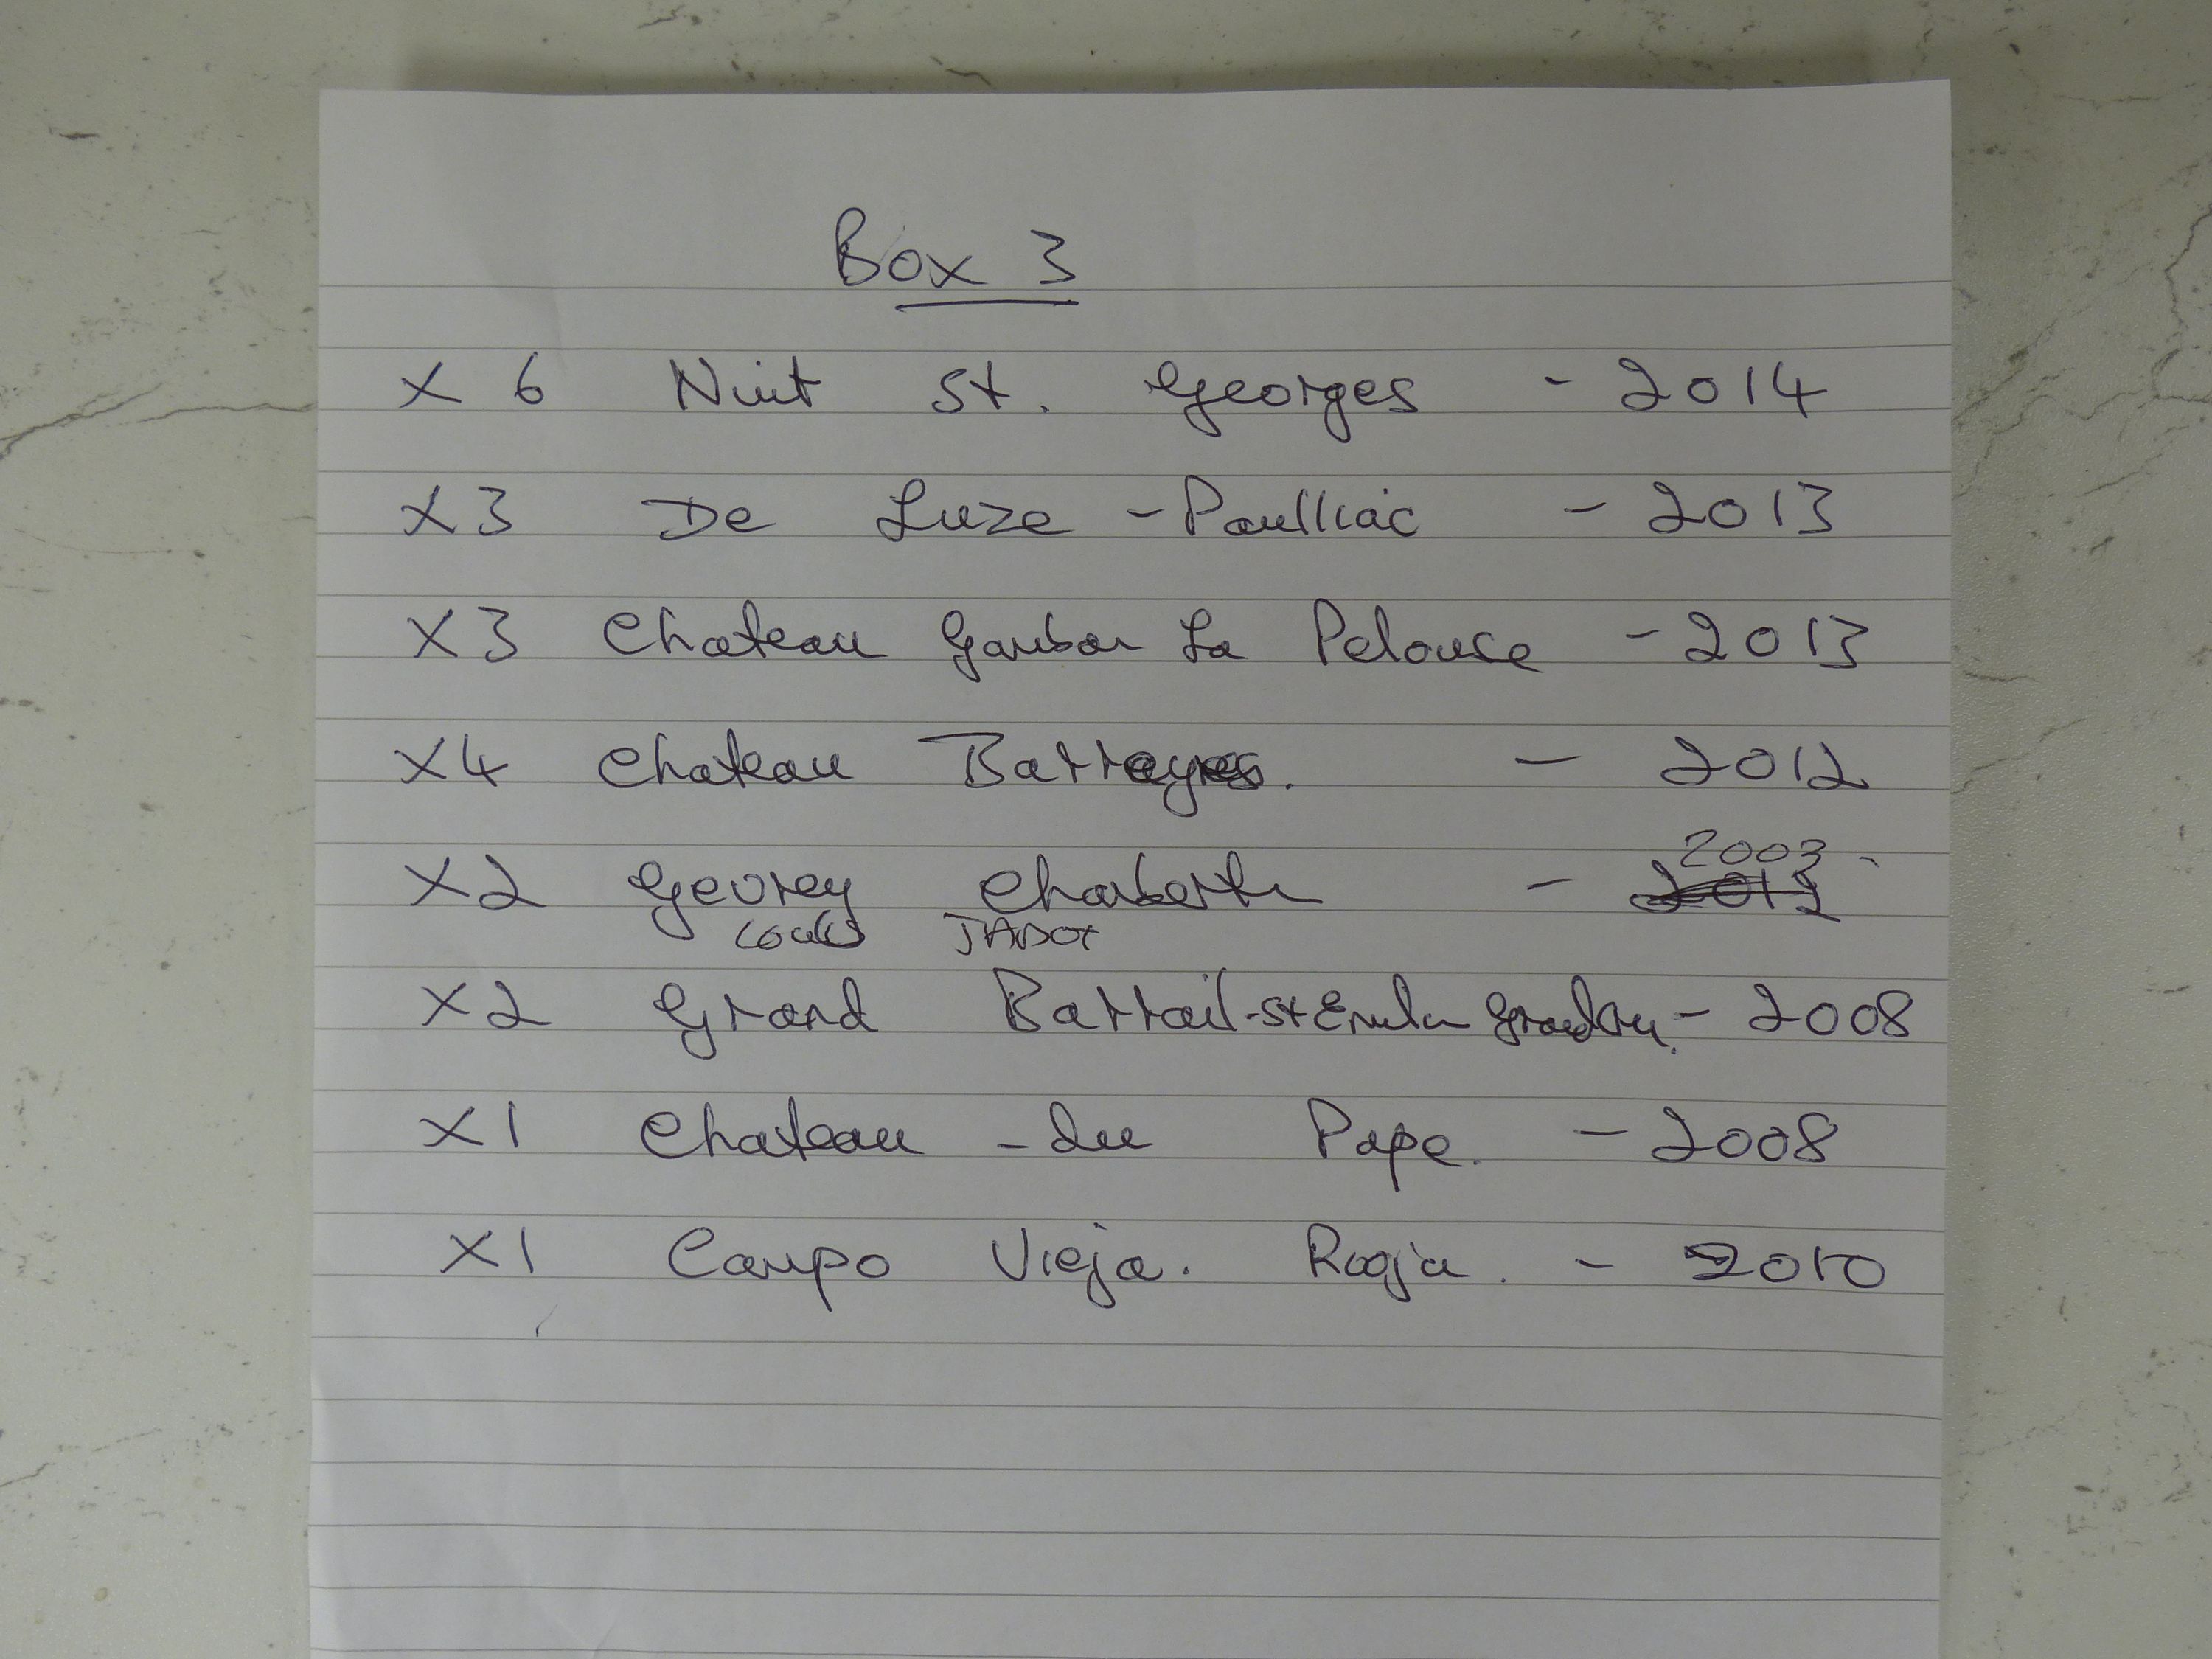 Box 3
X 6 Nuit St. Georges - 2014
X3 De Luze - Paulliac - 2013
X3 Chateau Gaubar La Pelouse - 2013
X4 Chateau Barrayres. - 2012
2003
X2 Gevrey - 2012
Louis JADOT
X2 Grand Barrail - St Emilion Grand Cru. - 2008
X1 Chateau - du Pape. - 2008
X1 Campo Vieja. Rioja. - 2010